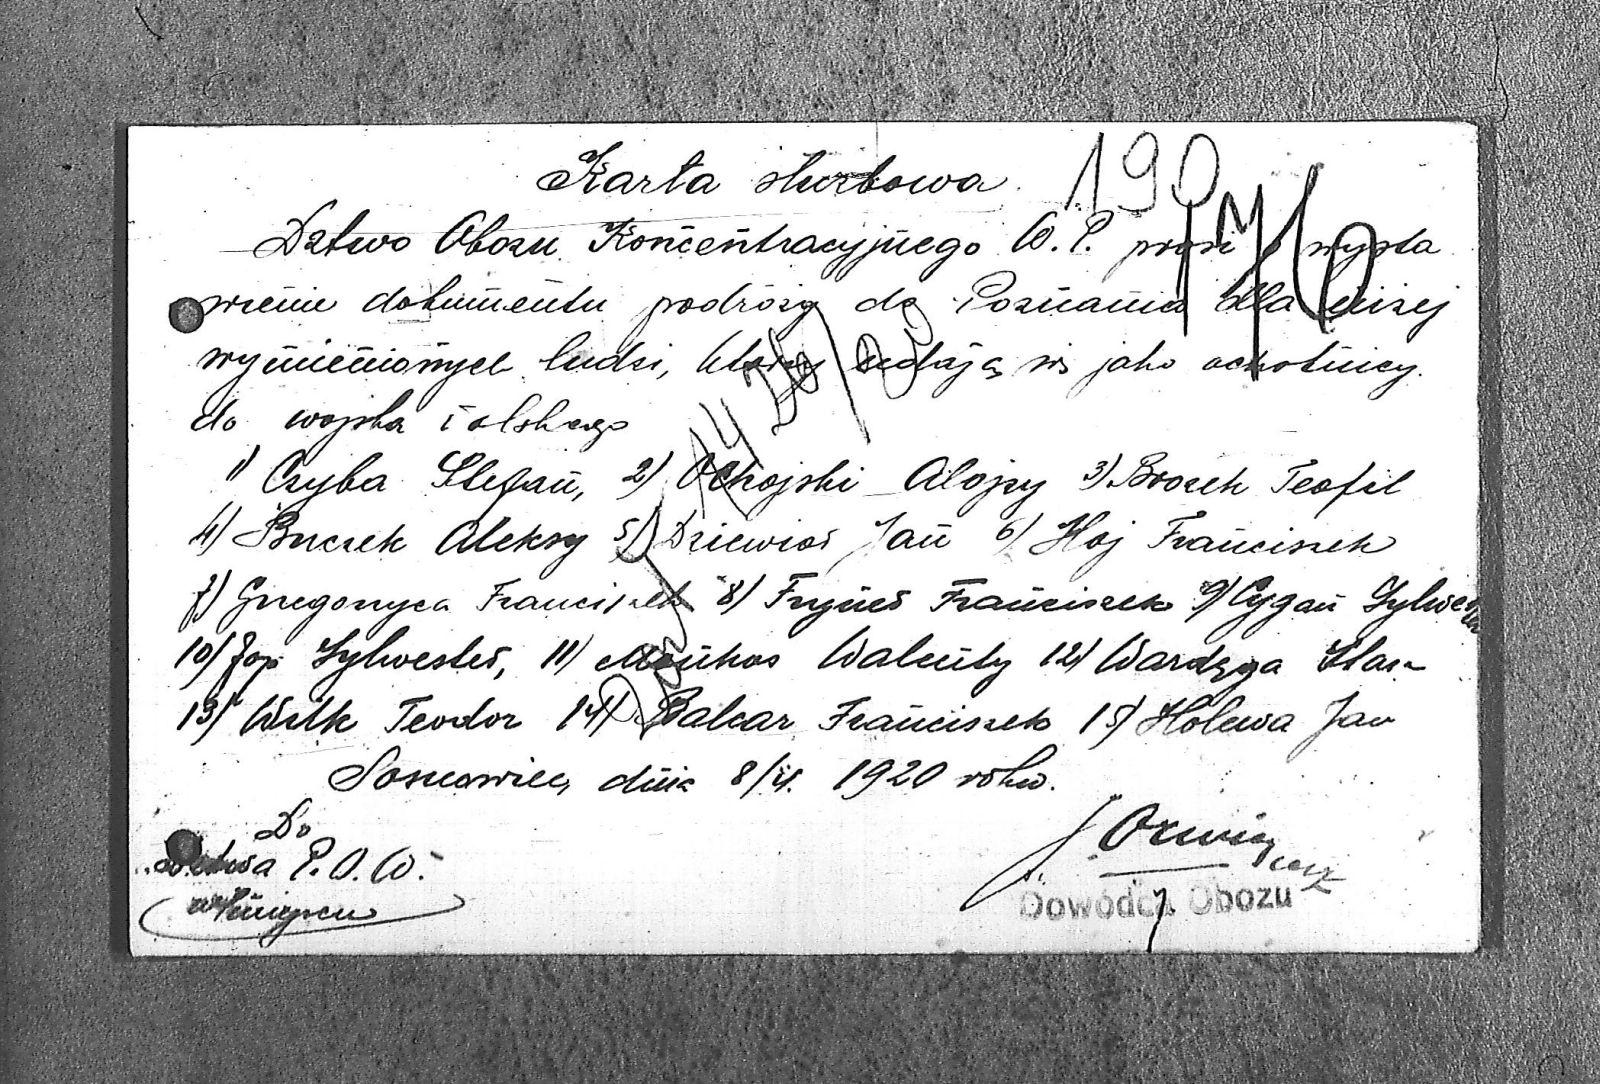 Karta służbowa
190
Dztwo Obozu Koncentracyjnego W. P. prosi o wysta
wienie dokumentu podróży do Poznania dla niżej
wymienionych ludzi, którzy udają się jako ochotnicy
do wojska Polskego
1) Czyba Stefan, 2) Ochojski Alojzy 3) Brozek Teofil
4) Buczek Aleksy 5) Dziewior Jan 6) Hoj Franciszek
7) Gregorzyca Franciszek 8) Franciszek 9) Cygan Sylwester
10) Jop Sylwester, 11) Walenty 12) Wardzga
13) Teodor 14) Balcar Franciszek 15) Holewa Jan
Sosnowiec, dnia 8/V. 1920 roku.
Do
Dztwa P.O.W.
w miejscu
Dowódca Obozu